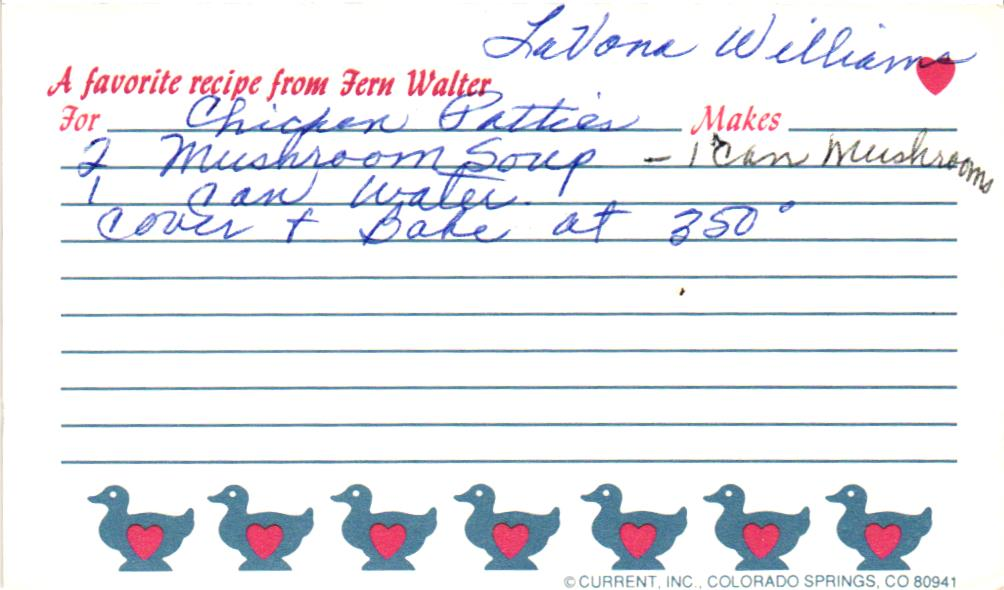 LaVona Williams
A favorite recipe from Fern Walter
For Chicken Patties Makes
2 Mushroom Soup - 1 can Mushrooms
1 can water.
Cover + Bake at 350°
© CURRENT, INC., COLORADO SPRINGS, CO 80941